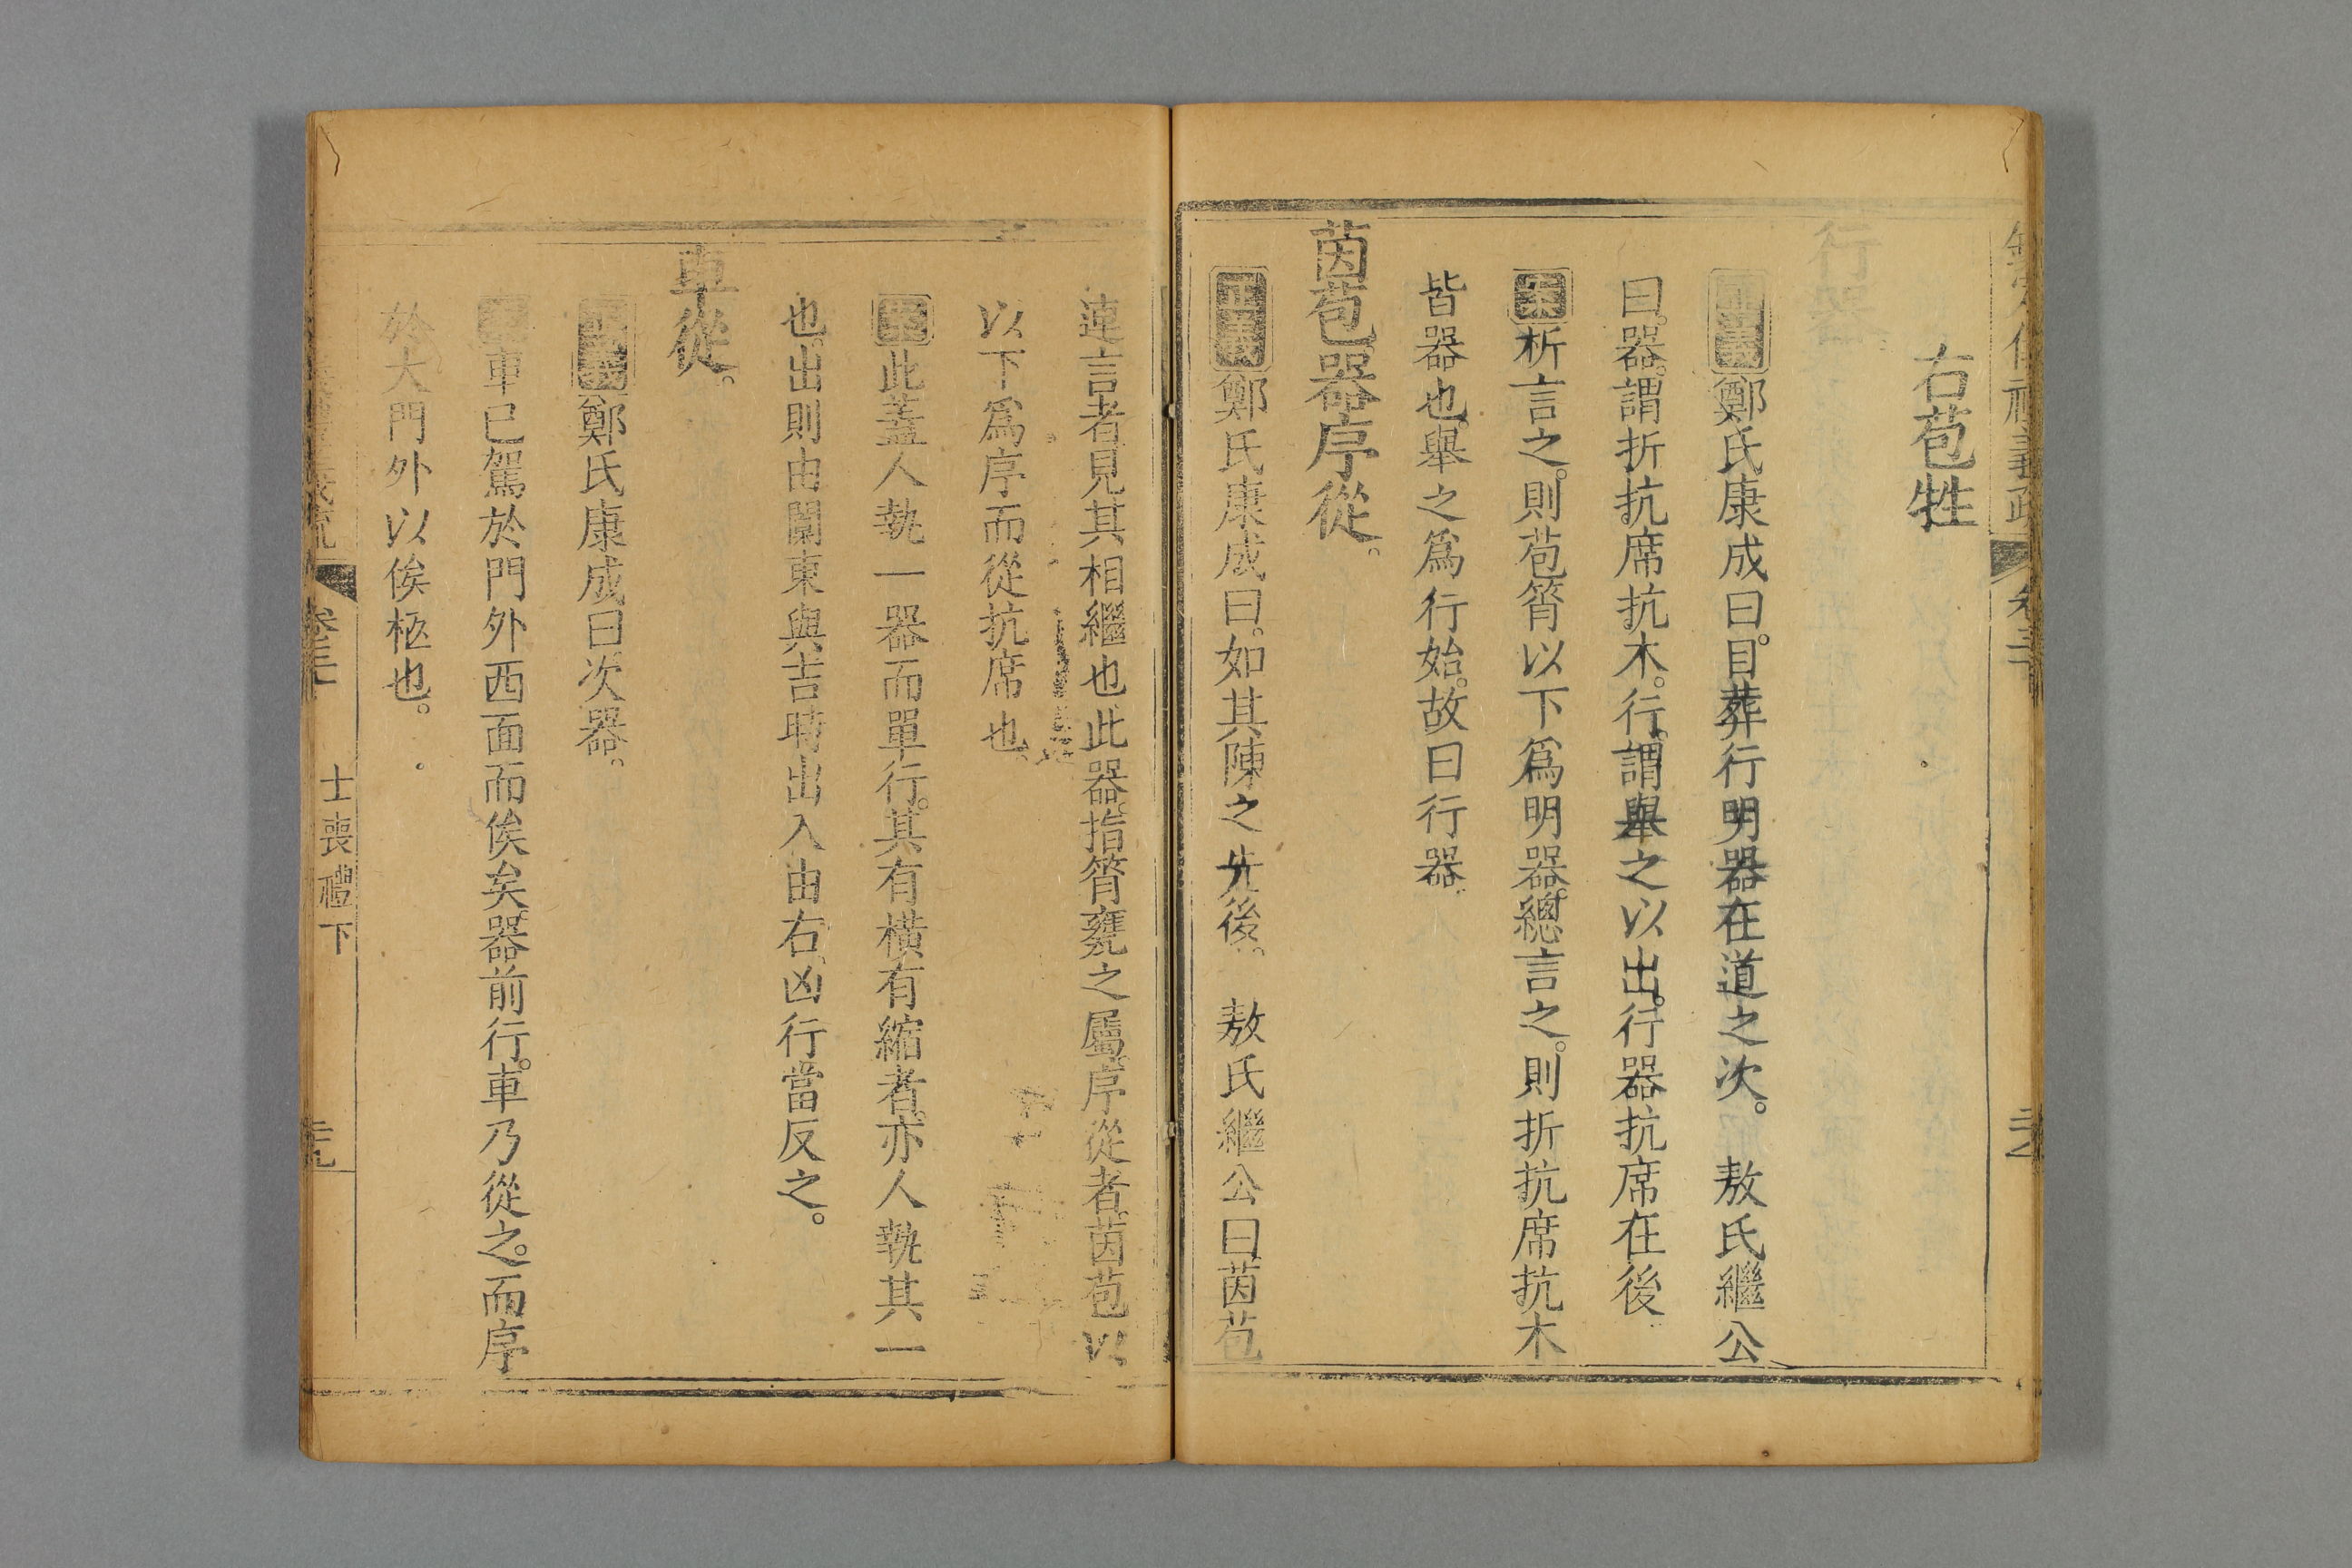 右苞牲
行器
正義鄭氏康成曰。目葬行明器在道之次。　敖氏繼公
曰。器。謂折抗席抗木。行。謂舉之以出。行器抗席在後
案析言之。則苞筲以下爲明器。總言之。則折抗席抗木
皆器也。舉之爲行始。故曰行器
茵苞器序從。
正義鄭氏康成曰。如其陳之先後。　敖氏繼公曰茵苞
連言者見其相繼也。此器。指筲甕之屬。序從者。茵苞以
以下爲序而從抗席也。
案此蓋人執一器而單行。其有橫有縮者。亦人執其一
也。出則由闑東與吉時出入由右。凶行當反之。
車從。
正義鄭氏康成曰次器。
車已駕於門外西面而俟矣。器前行。車乃從之。而序
於大門外以俟柩也。
士喪禮下